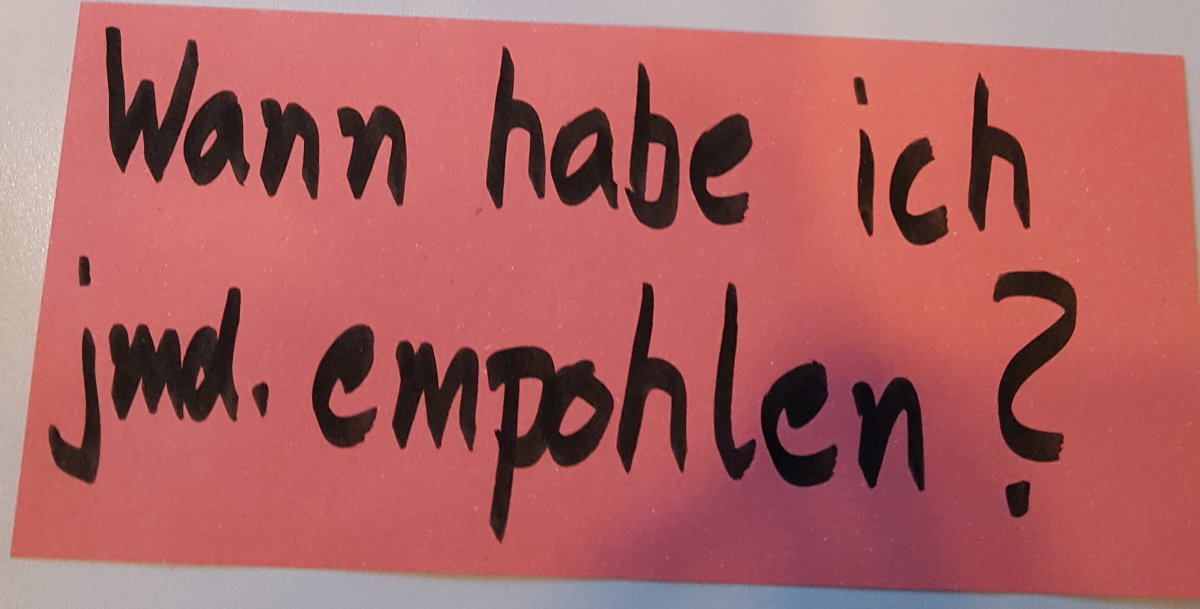 Wann habe ich
jmd. empohlen?